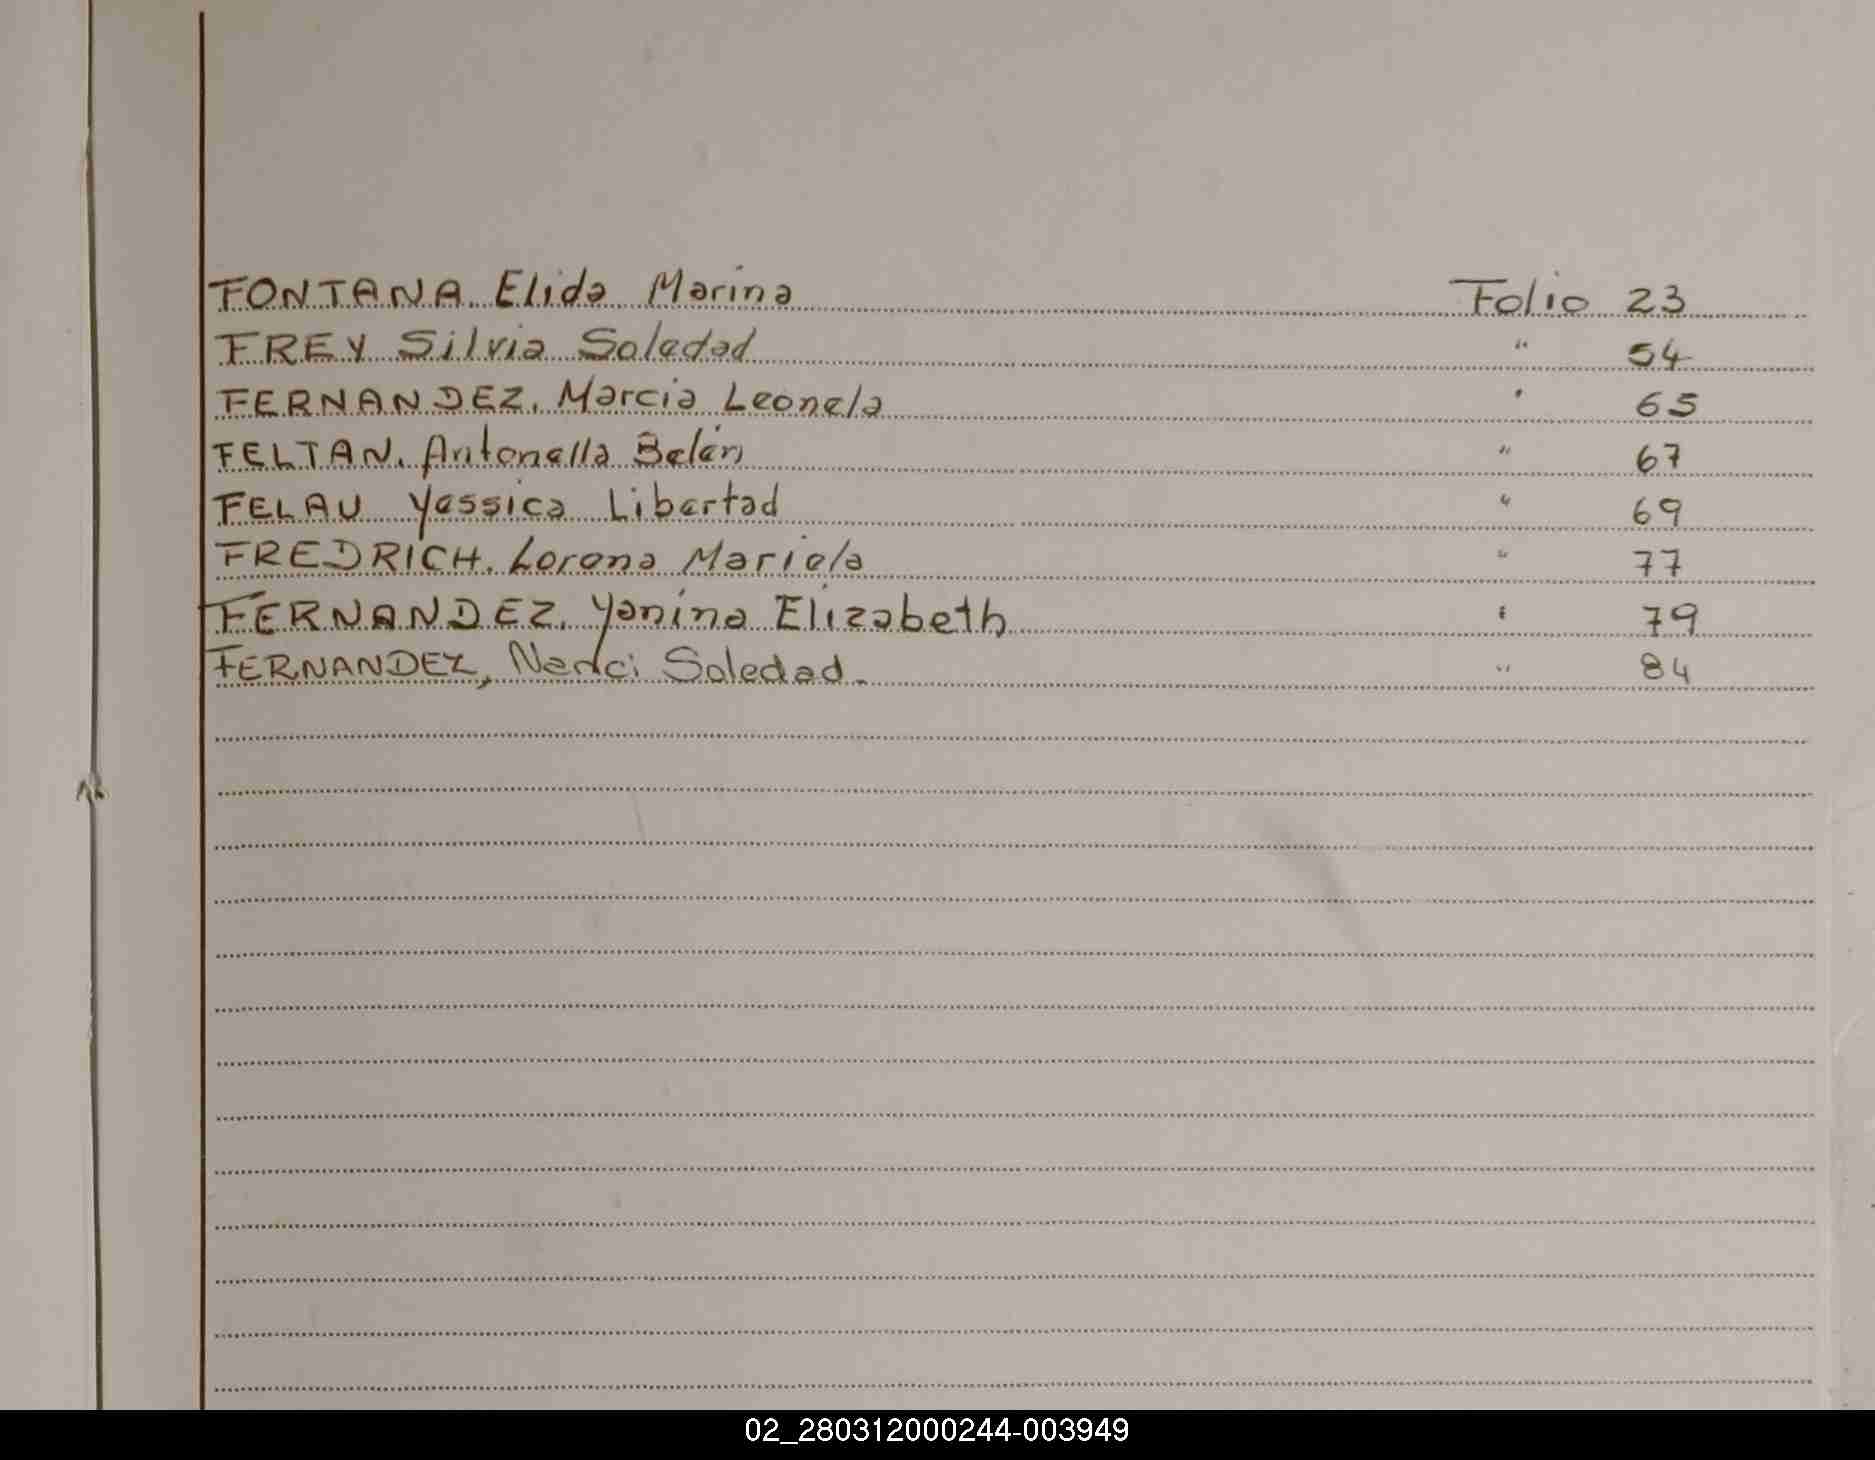 FONTANA. Elida Marina Folio 23
FREY Silvia Soledad " 54
FERNANDEZ. Marcia Leonela " 65
FELTAN. Antonella Belén " 67
FELAU Yessica Libertad " 69
FREDRICH. Lorena Mariela " 77
FERNANDEZ. Yanina Elizabeth " 79
FERNANDEZ, Nanci Soledad. " 84
02_280312000244-003949